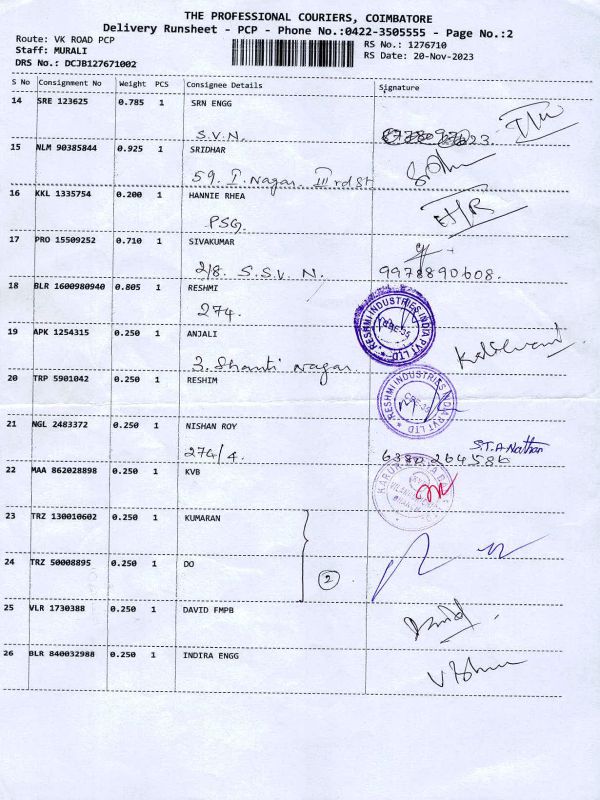 THE PROFESSIONAL COURIERS, COIMBATORE
Delivery Runsheet - PCP - Phone No.:0422-3505555 - Page No.:2
Route: VK ROAD PCP
RS No.: 1276710
Staff: MURALI
RS Date: 20-Nov-2023
DRS No.: DCJB127671002
S No Consignment No Weight PCS Consignee Details Signature
14 SRE 123625 0.785 1 SRN ENGG
S.V.N.
15 NLM 90385844 0.925 1 SRIDHAR
59. I. Nagar. III rd St
16 KKL 1335754 0.200 1 HANNIE RHEA
PSG.
17 PRO 15509252 0.710 1 SIVAKUMAR
2/8. S.S.V. N. 9978890608.
18 BLR 1600980940 0.805 1 RESHMI
274.
RESHMI INDUSTRIES INDIA PVT LTD
19 APK 1254315 0.250 1 ANJALI
3. Shanti Nagar
20 TRP 5901042 0.250 1 RESHIM
RESHMI INDUSTRIES INDIA PVT LTD
21 NGL 2483372 0.250 1 NISHAN ROY
S.T.A Nathan
274/4. 6380 264586
22 MAA 862028898 0.250 1 KVB
23 TRZ 130010602 0.250 1 KUMARAN
24 TRZ 50008895 0.250 1 DO
2
25 VLR 1730388 0.250 1 DAVID FMPB
David
26 BLR 840032988 0.250 1 INDIRA ENGG